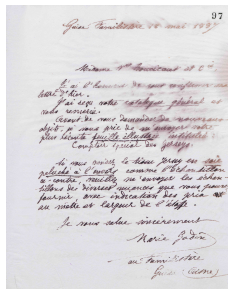 97
Guise Familistère 18 août 1897
Madame Vve
J'ai l'honneur de vous
lettre d'hier.
J'ai reçu votre catalogue général et
vous remercie.
Avant de vous demander de nouveaux
objets, je vous prie de m'envoyer votre
plus récente feuille illustrée intitulée :
Comptoir spécial des
Si vous aviez le tissu en soie
peluche à comme l'échantillon
ci-contre, veuillez m'envoyer les échan-
tillons de diverses nuances que vous pouvez
fournir, avec indication des prix
au mètre et largeur de l'étoffe.
Je vous salue sincèrement
Marie Godin
au Familistère
Guise (Aisne)